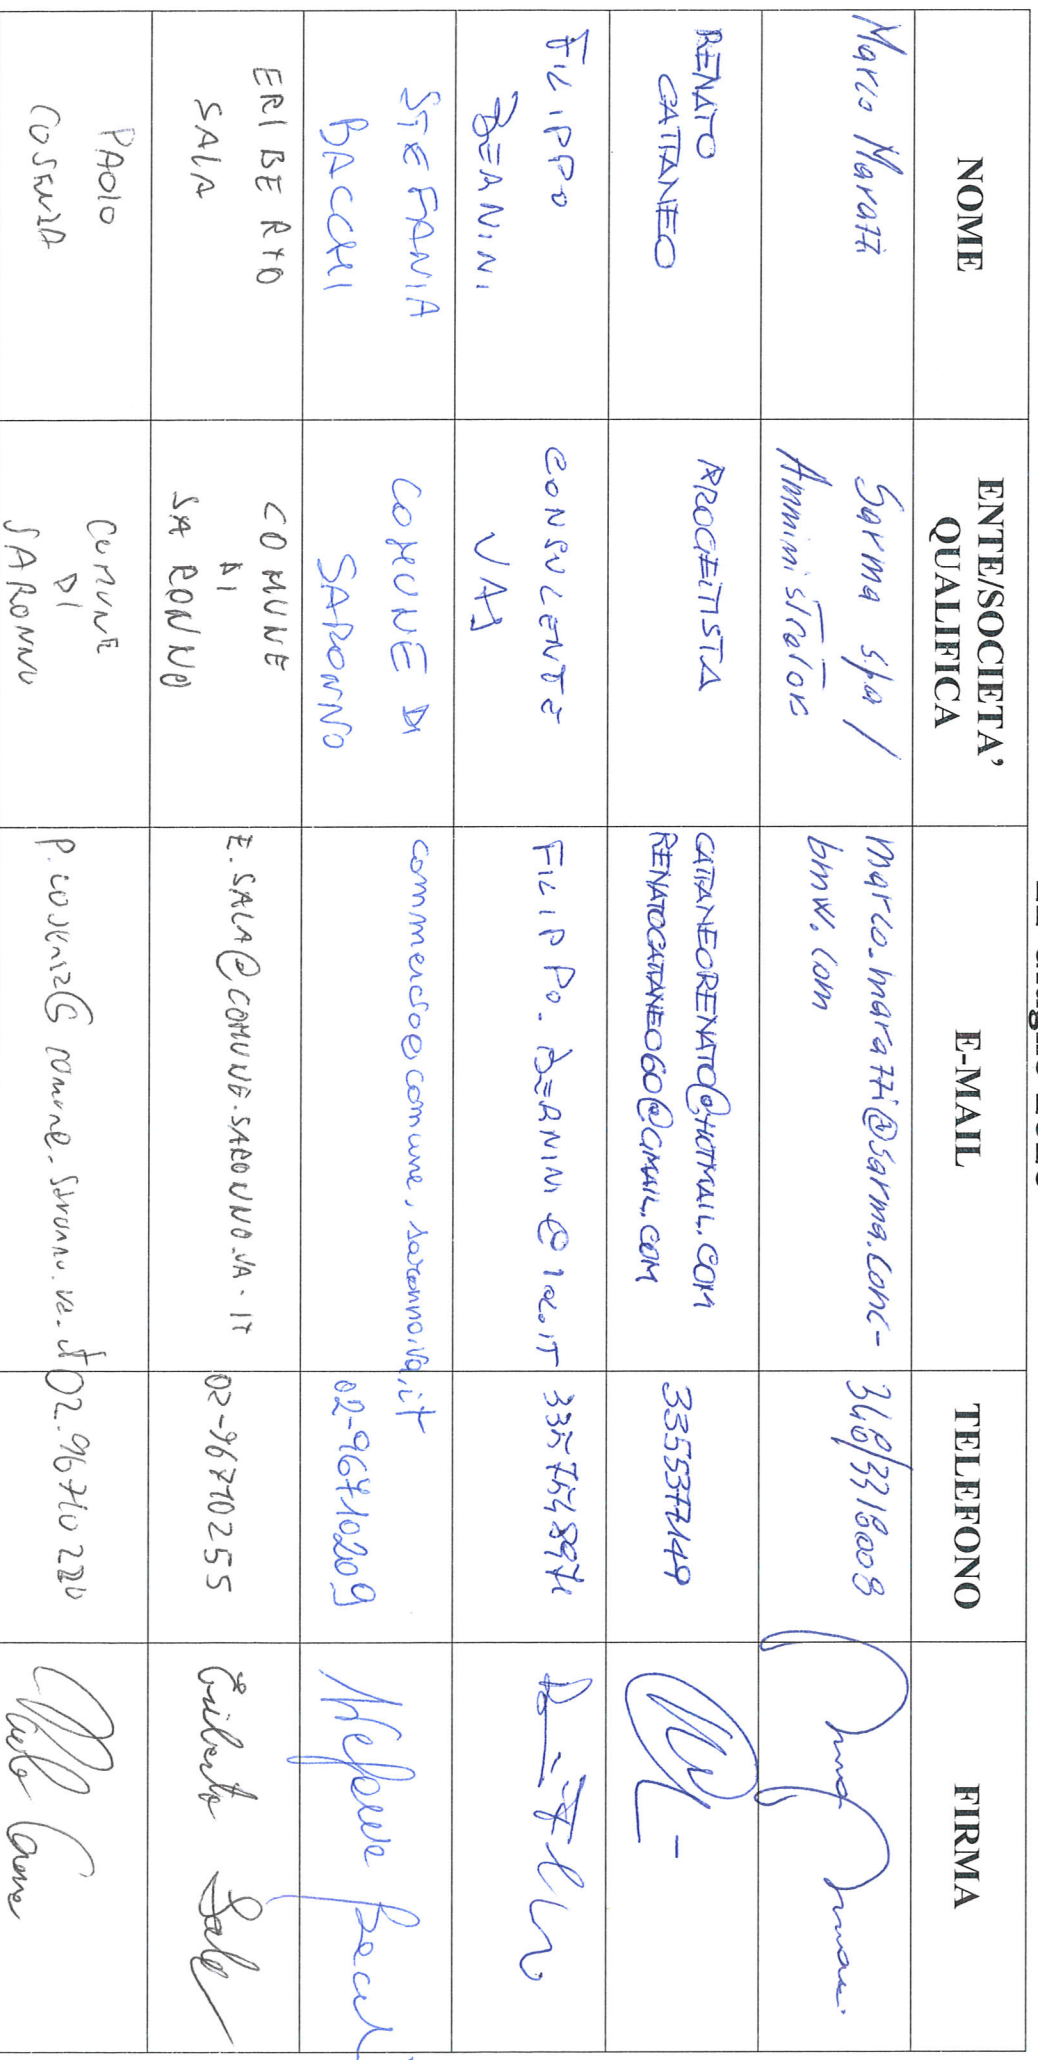 NOME
ENTE/SOCIETA'
QUALIFICA
E-MAIL
TELEFONO
FIRMA
Marco Marazzi
Sarma spa /
Amministratore
marco.marazzi@sarma.conc-
bmw.com
348/3318008
RENATO
CATTANEO
PROGETTISTA
CATTANEORENATO@HOTMAIL.COM
RENATOCATTANEO60@GMAIL.COM
3355377149
FILIPPO
BERNINI
CONSULENTE
VAS
STEFANIA
BACCHI
COMUNE DI
SARONNO
commercio@comune.saronno.va.it
02-96710209
Stefania Bacchi
ERIBERTO
SALA
COMUNE
DI
SARONNO
E.SALA@COMUNE.SARONNO.VA.IT
02-96710255
Eriberto Sala
PAOLO
COSENZA
COMUNE
DI
SARONNO
p.cosenza@comune.saronno.va.it
02.96710220